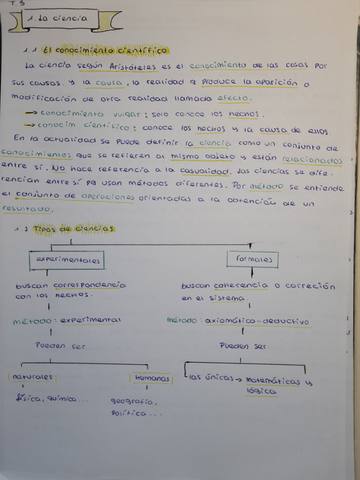 T.3
1. La ciencia
1.1 El conocimiento científico
La ciencia según Aristóteles es el conocimiento de las cosas por
sus causas. Y la causa, la realidad q produce la aparición o
modificación de otra realidad llamada efecto.
→ conocimiento vulgar: solo conoce los hechos.
→ conocim científico: conoce los hechos y la causa de ellos
En la actualidad se puede definir la ciencia como un conjunto de
conocimientos que se refieren al mismo objeto y están relacionados
entre sí. No hace referencia a la casualidad. Las ciencias se dife-
rencian entre sí pq usan métodos diferentes. Por método se entiende
el conjunto de operaciones orientadas a la obtención de un
resultado.
1.2 Tipos de ciencias
experimentales formales
buscan correspondencia buscan coherencia o correción
con los hechos. en el sistema.
método: experimental método: axiomático-deductivo
Pueden ser Pueden ser
naturales humanas las únicas → matemáticas y
lógica
física, química... geografía,
política...